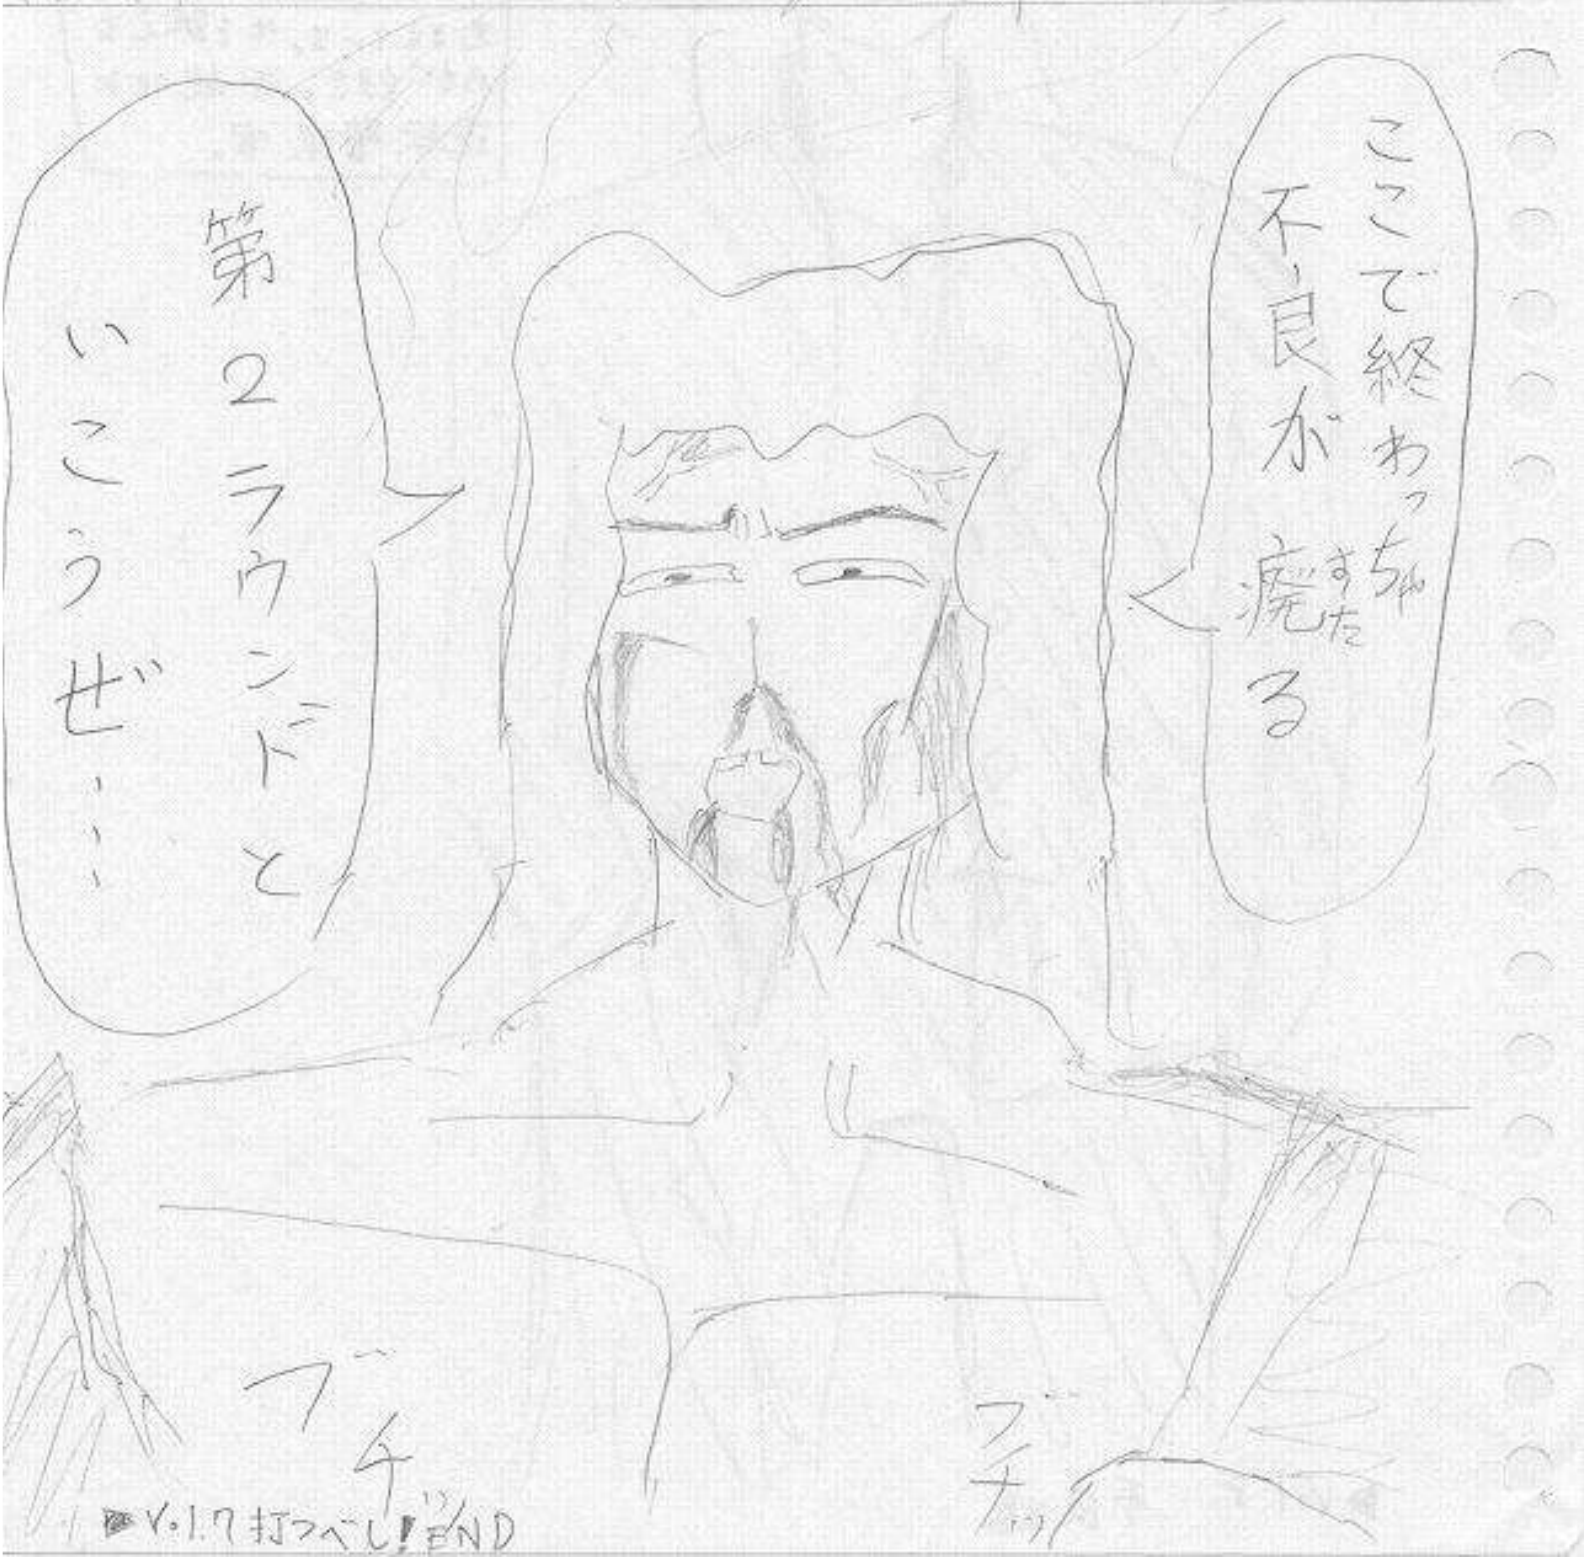 ここで終わっちゃ
不良が廃る
すた
第2ラウンドと
いこうぜ・・・
ブチッ
ブチッ
▶Vol.7打つべし!END